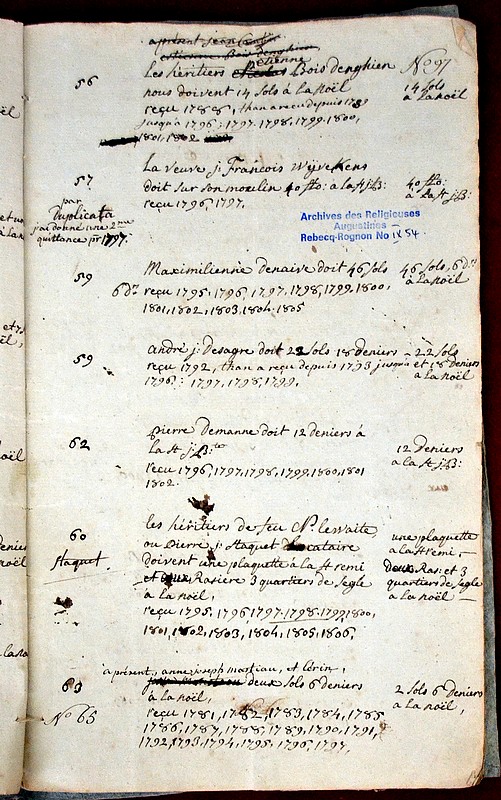 àprésent jean
56
Les héritiers étienne Bois denghien
nous doivent 14 sols à la noël
reçu 1788, than a reçu depuis 1789
jusqu'a 1796: 1797. 1798. 1799. 1800,
1801, 1802
N° 97
14 sols
à la noël
57
La veuve j: François Wijvekens
doit sur son moulin 40 flo: a la st j:B:
reçu 1796, 1797.
40 flo:
a la st j:B:
par
Duplicata
j'ai donné une 2me
quittance pr 1797.
Archives des Religieuses
Augustines
Rebecq-Rognon No IX 54
59
Maximilienne denaive doit 46 sols
6 drs reçu 1795, 1796, 1797, 1798, 1799, 1800,
1801, 1802, 1803, 1804. 1805
46 sols, 6 drs
à la noël
59
andré j: Desagre doit 22 sols 18 deniers
reçu 1792, than a reçu depuis 1793 jusqu'a
1796: 1797, 1798, 1799,
22 sols
et 18 deniers
a la noël
62
pierre Demanne doit 12 deniers à
la st j:B:te
reçu 1796, 1797, 1798, 1799, 1800, 1801
1802.
12 Deniers
a la st j:B:
60
Staquet.
les héritiers de feu N. lewaite,
ou pierre j: Staquet Locataire
doivent une plaquette a la st remi
et deux Rasiere 3 quartiers de segle
à la noël,
reçu 1795. 1796, 1797. 1798. 1799, 1800,
1801, 1802, 1803, 1804, 1805, 1806,
une plaquette
a la st remi,
deux Ras: et 3
quartiers de segle
a la noël
63
N° 65
a présent, anne joseph mastiau, et Lérin,
deux sols 6 deniers
à la noël,
reçu 1781, 1782, 1783, 1784, 1785
1786, 1787, 1788, 1789, 1790, 1791,
1792, 1793, 1794, 1795, 1796, 1797,
2 sols 6 Deniers
à la noël,